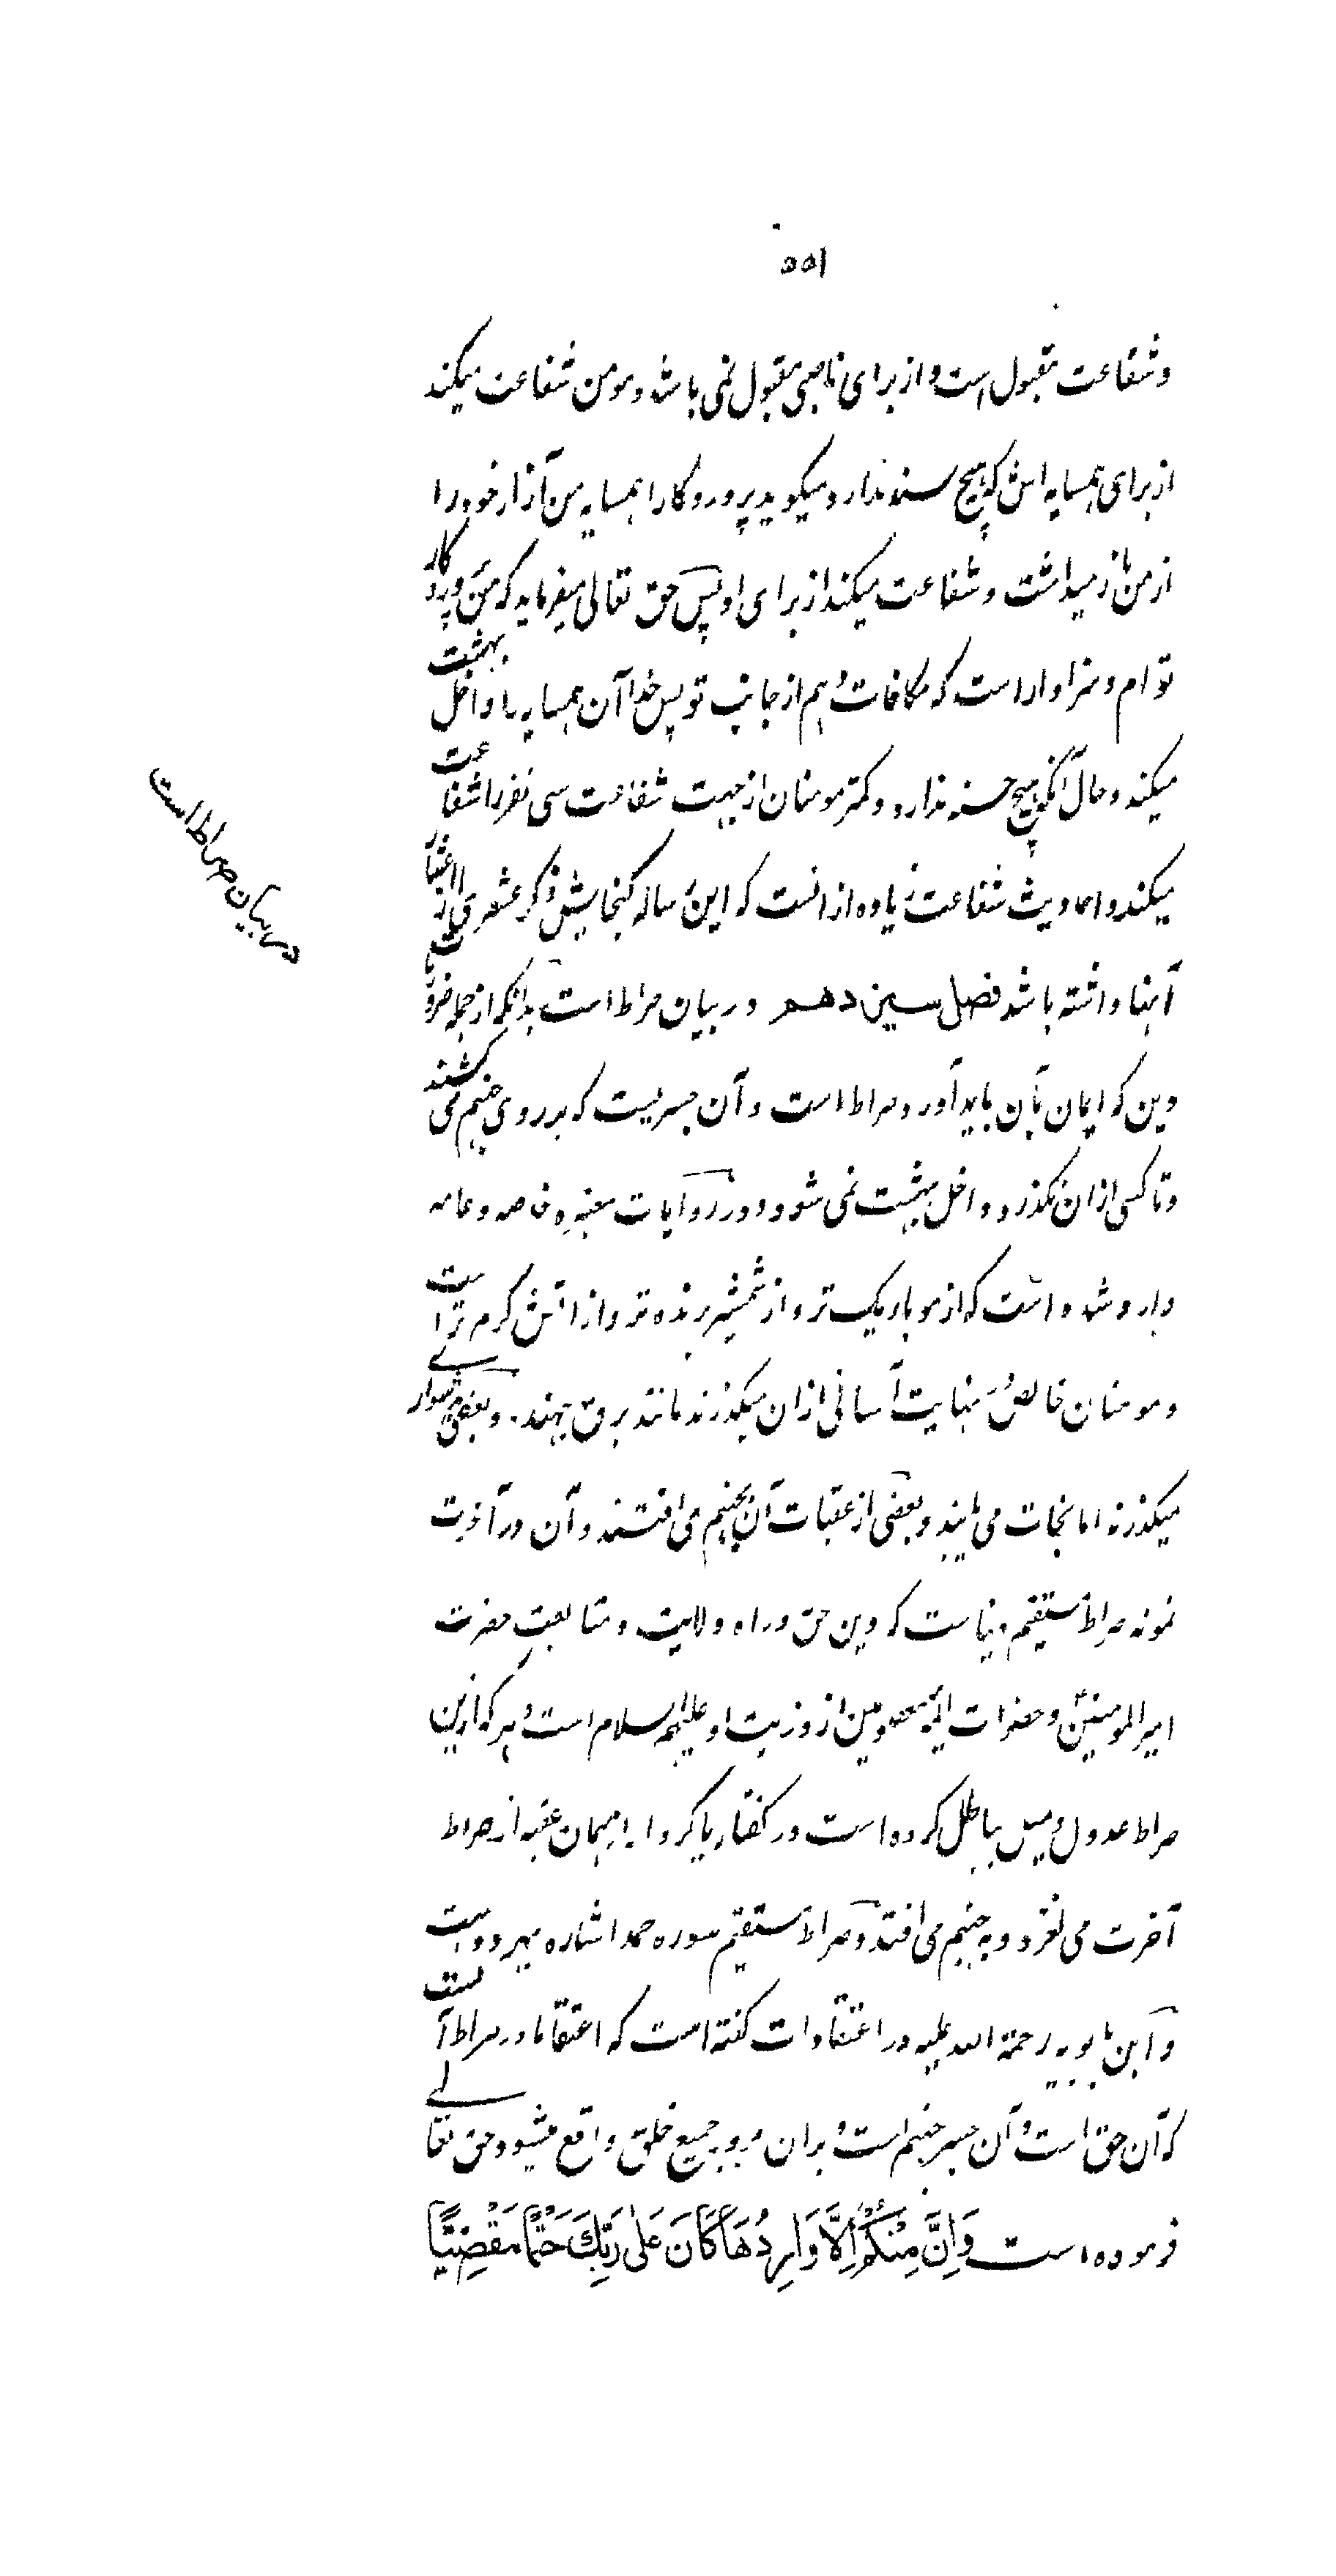 ۵۵۱
و شفاعت مقبول است و از برای ناصبی مقبول نمی باشد و مومن شفاعت میکند
از برای همسایه اش که هیچ حسنه ندارد و میگوید پروردگارا همسایه من آزار خود را
از من باز میداشت و شفاعت میکند از برای او پس حق تعالی میفرماید که من پروردگار
تو ام و سزاوار است که مکافات دهم از جانب تو پس خدا آن همسایه را داخل بهشت
میکند و حال آنکه هیچ حسنه ندارد و کمتر مومنان از جهت شفاعت سی نفر را شفاعت
میکند و احادیث شفاعت زیاده از انست که این رساله گنجایش ذکر عشری از اعشار
آنها داشته باشد فصل سیزدهم در بیان صراط است بدانکه از جمله ضروریات
دین که ایمان بآن باید آورد صراط است و آن جسریست که بر روی جهنم می کشند
و تا کسی از ان نگذرد داخل بهشت نمی شود و در روایات معتبره خاصه و عامه
وارد شده است که از مو باریک تر و از شمشیر برنده تر و از اتش گرم تر است
و مومنان خالص بنهایت آسانی از ان میگذرند مانند برق جهنده و بعضی بدشواری
میگذرند اما نجات می یابند و بعضی از عقبات آن بجهنم می افتند و آن در آخرت
نمونه صراط مستقیم دنیاست که دین حق و راه ولایت و متابعت حضرت
امیر المومنین و حضرات ائمه معصومین از ذریت او علیهم السلام است و هر که ازین
صراط عدول و میل بباطل کرده است در گفتار یا کردار از همان عقبه از صراط
آخرت می لغزد و به جهنم می افتد و صراط مستقیم سوره حمد اشاره بهر دو است
و ابن بابویه رحمة الله علیه در اعتقادات گفته است که اعتقاد ما در صراط آنست
که آن حق است و آن جسر جهنم است و بران مرور جمیع خلق واقع میشود و حق تعالی
فرموده است وَاِنَّ مِنْكُمْ اِلَّا وَارِدُهَا كَانَ عَلىٰ رَبِّكَ حَتْمًا مَقْضِيًّا
در بیان صراط است